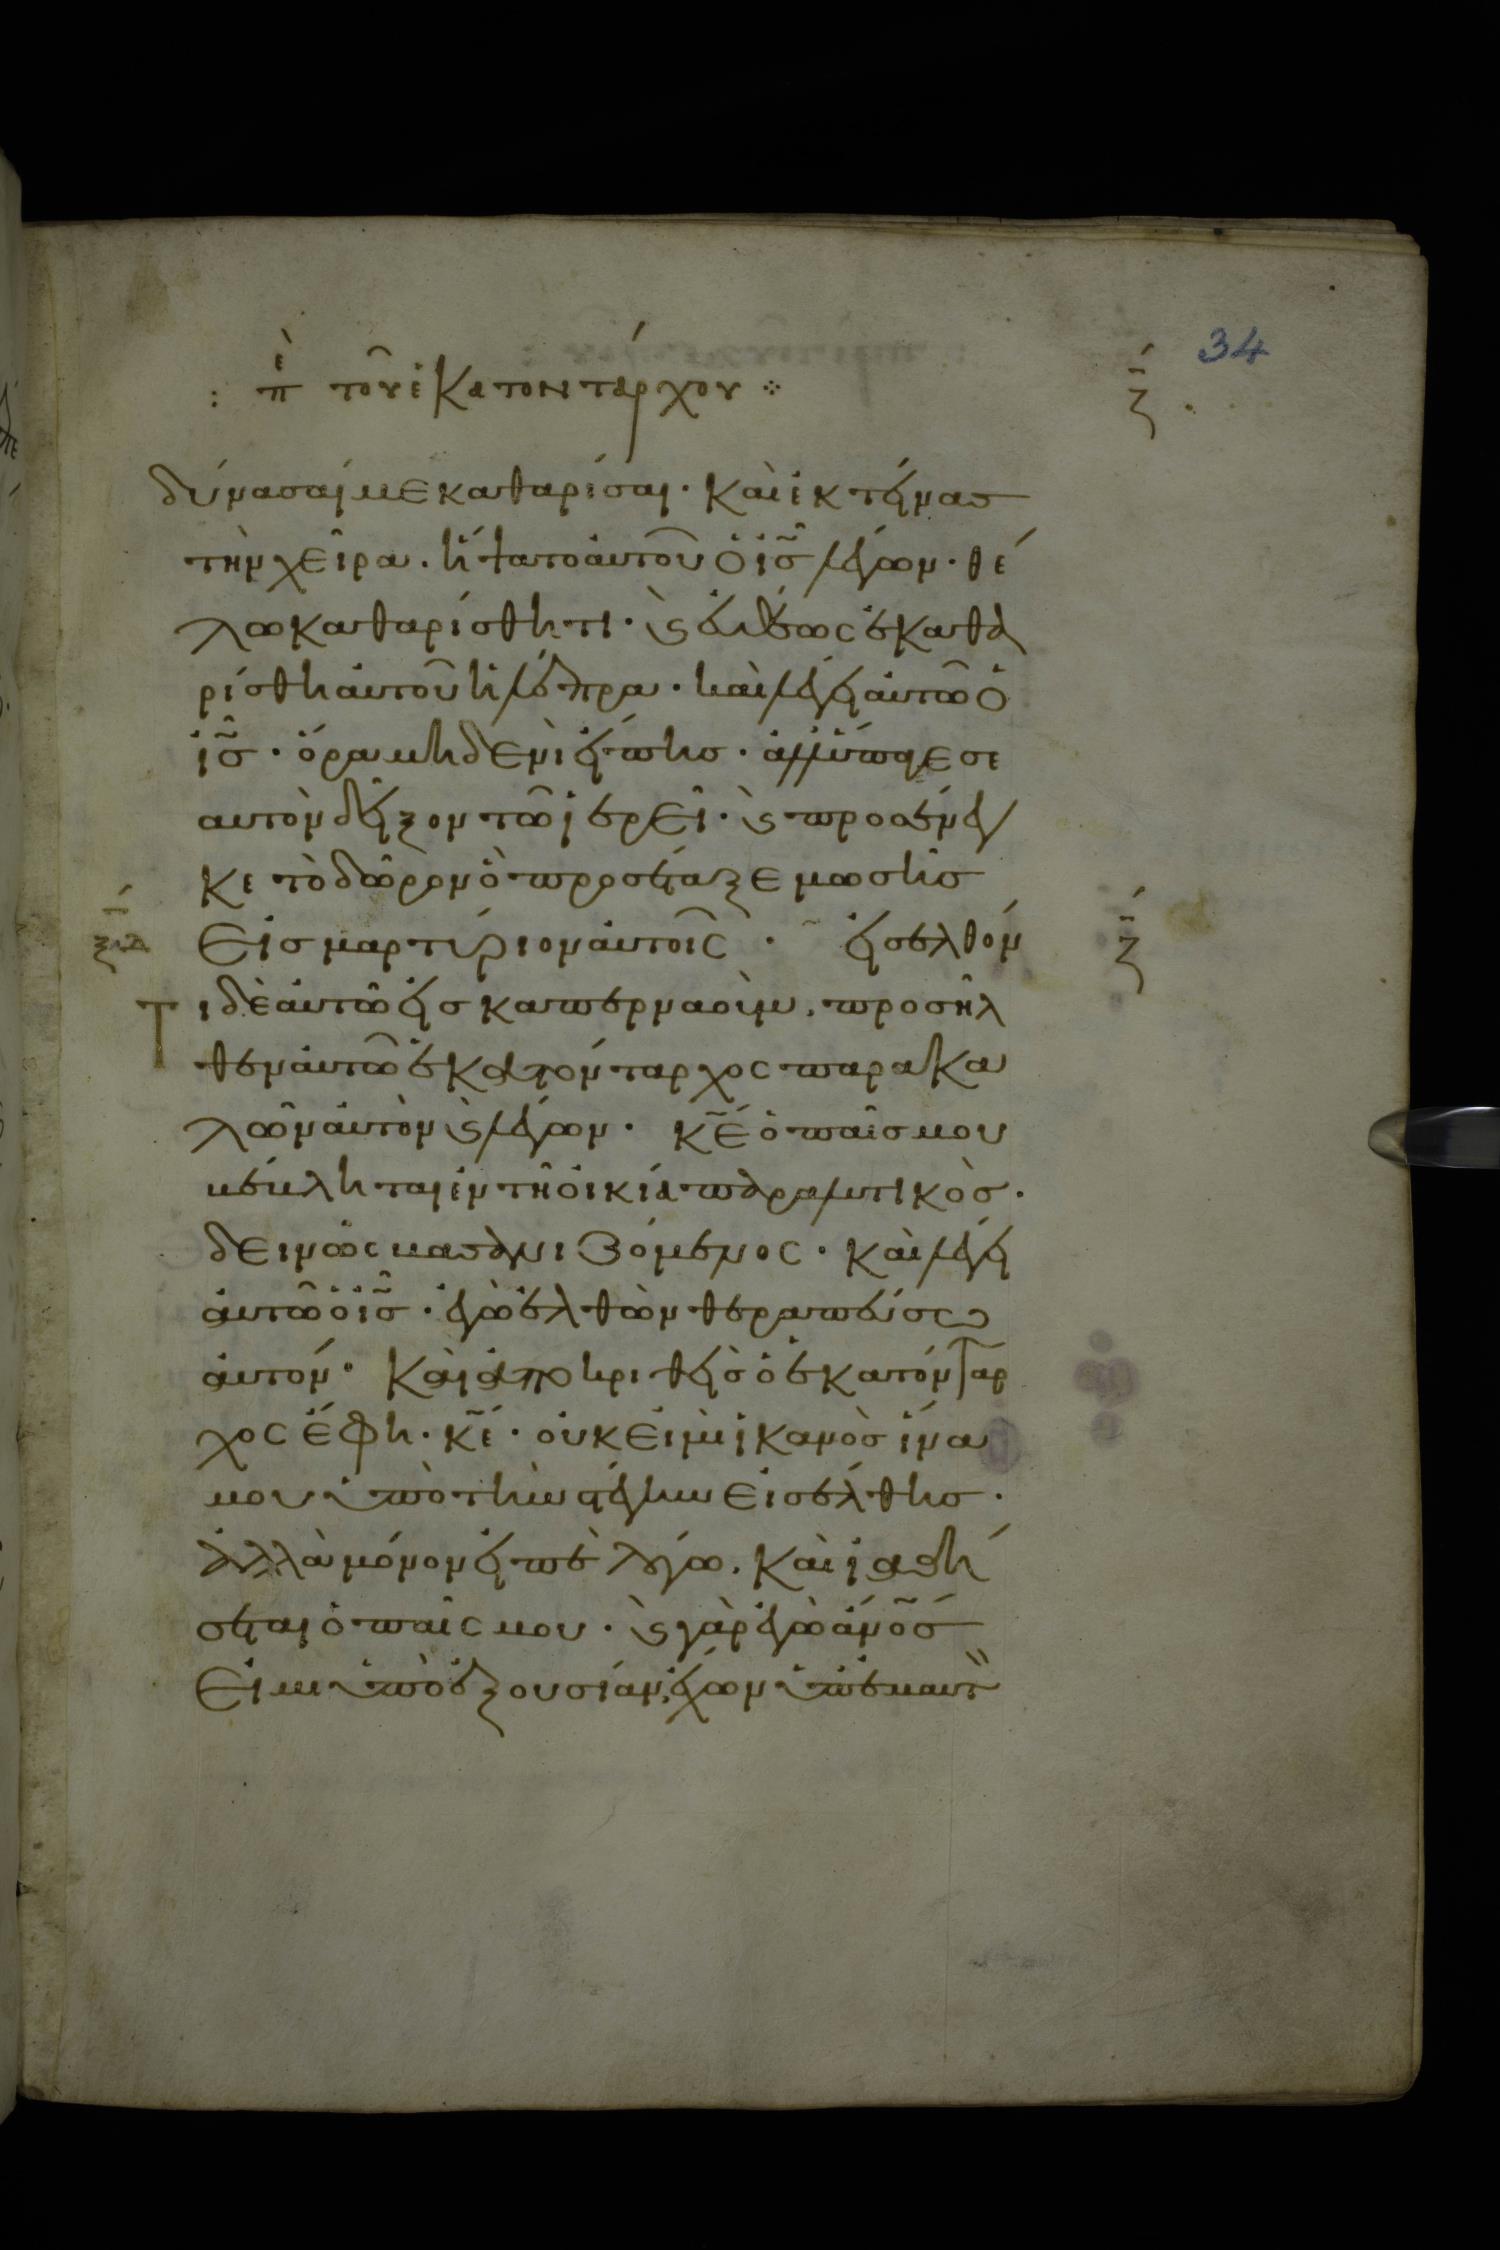 34
ζ
: πὲ τοῦ ἑκατοντάρχου ⁘
δύνασαί με καθαρίσαι· καὶ ἐκτείνασ
τὴν χεῖρα. ἥψατο αὐτοῦ ὁ ἰ̅σ̅ λέγων· θέ
λω καθαρίσθητι· ϗ εὐθέως ἐκαθα
ρίσθη αὐτοῦ ἡ λέπρα· καὶ λέγει αὐτῶ ὁ
ἰ̅σ̅· ὅρα μηδενὶ εἴπησ· ἀλλ' ὕπαγε σε
αυτὸν δεῖξον τῶ ἱερεῖ· ϗ προσένεγ
κε τὸ δῶρον ὃ προσέταξε μωσῆσ
εἰσ μαρτύριον αὐτοῖς· εἰσελθόν
ξδ
ζ
Τι δὲ αὐτῶ εἰσ καπερναούμ, προσῆλ
θεν αὐτῶ ἑκατόνταρχος παρακα
λῶν αὐτὸν ϗ λέγων· κ̅ε̅ ὁ παῖσ μου
βέβληται ἐν τῆ οἰκία παραλυτικὸσ·
δεινῶς βασανιζόμενος· καὶ λέγει
αὐτῶ ὁ ἰ̅σ̅· ἐγὼ ἐλθὼν θεραπεύσω
αὐτόν· καὶ ἀποκριθεὶσ ὁ ἑκατόνταρ
χος ἔφη· κ̅ε̅· οὐκ εἰμὶ ἱκανὸσ ἵνα
μου ὑπὸ τὴν στέγην εἰσέλθησ·
ἀλλὰ μόνον εἰπὲ λόγω. καὶ ἰαθή
σεται ὁ παῖς μου· ϗ γὰρ ἐγὼ ἀ̅ν̅ο̅σ̅
εἰμι ὑπὸ ἐξουσίαν, ἔχων ὑπ' ἐμαυτ